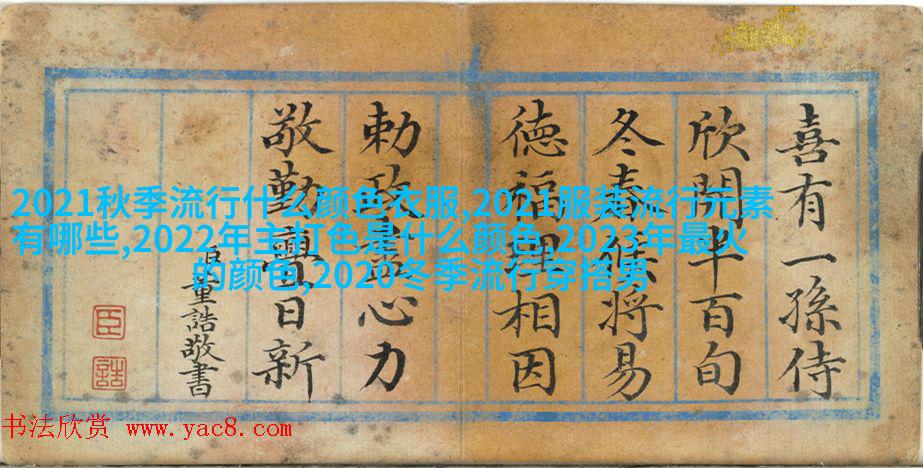 喜有一孫侍
欣開半百旬
冬春將易
德福理相因
勅政心力
敬勤日新
臣董誥敬書
臣
誥
2021秋季流行什么颜色衣服,2021服装流行元素
有哪些,2022年主打色是什么颜色,2023年最火
的颜色,2020冬季流行穿搭男
书法欣赏 www.yac8.com